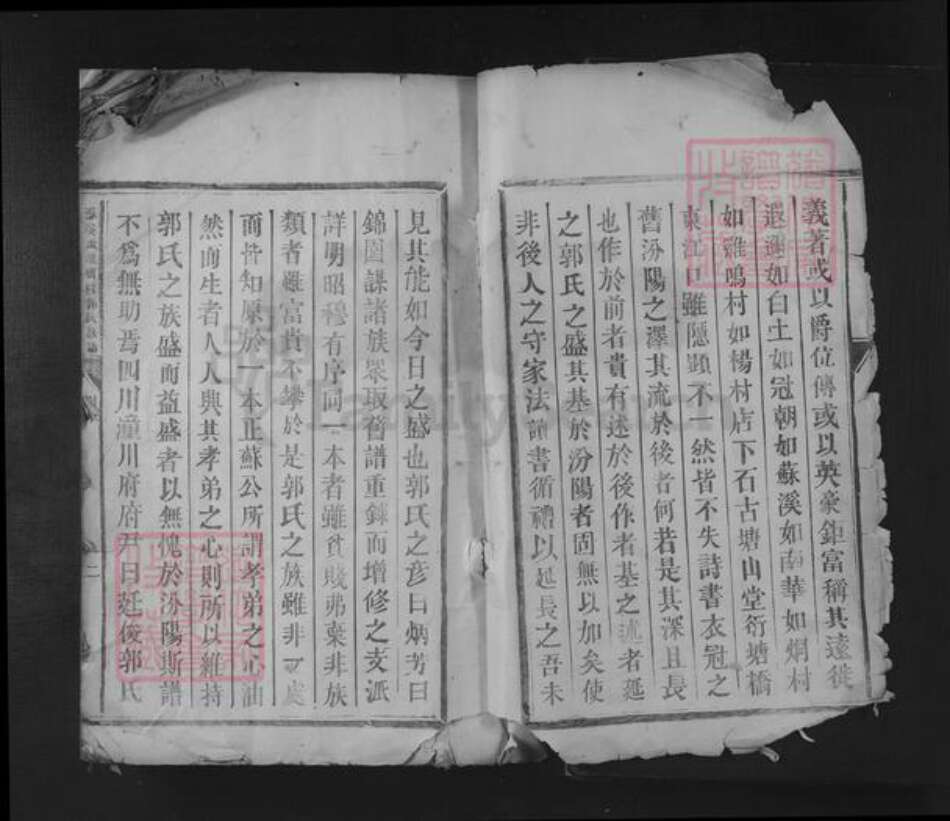 義著或以爵位傳或以英豪鉅富稱其遠徙
遐遷如白土如冠朝如蘇溪如南華如烱村
如雞鳴村如楊村店下石古塘山堂衍塘橋
東江口雖隱顯不一然皆不失詩書衣冠之
舊汾陽之澤其流於後者何若是其深且長
也作於前者貴有述於後作者基之流者延
之郭氏之盛其基於汾陽者固無以加矣使
非後人之守家法讀書循禮以延長之吾未
見其能如今日之盛也郭氏之彥曰炳芳曰
錦圖謀諸族眾取舊譜重錄而增修之支派
詳明昭穆有序同一本者雖貧賤弗棄非族
類者雖富貴不攀於是郭氏之族雖非一處
而皆知原於一本正蘇公所謂孝弟之心油
然而生者人人興其孝弟之心則所以維持
郭氏之族盛而益盛者以無愧於汾陽斯譜
不爲無助焉四川潼川府府尹曰廷俊郭氏
二